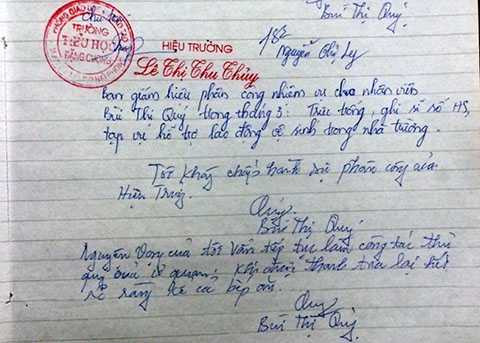 Bùi Thị Quý
TRƯỜNG
TIỂU HỌC
ĐẶNG CƯƠNG
HIỆU TRƯỞNG
Lê Thị Thu Thủy
Nguyễn Thị Ly
Ban giám hiệu phân công nhiệm vụ cho nhân viên
Bùi Thị Quý trong tháng 3: Trực trống, ghi sĩ số HS,
tạp vụ hỗ trợ lao động vệ sinh trong nhà trường.
Tôi không chấp hành sự phân công của
Hiệu Trưởng.
Quý
Bùi Thị Quý
Nguyện vọng của tôi vẫn tiếp tục làm công tác thủ
quỹ thanh toán lại hết
rõ ràng kể cả bếp ăn.
Quý
Bùi Thị Quý